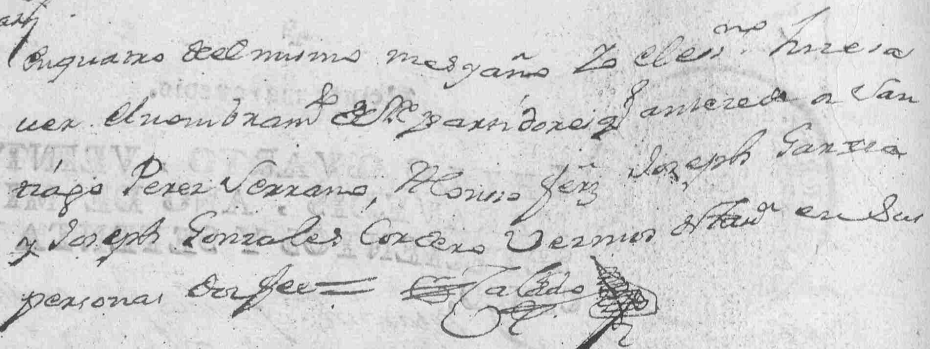 En quatro del mismo mes y año Yo el ess.no hize sa
ver el nombram.to de Rexidores q antecede a San
tiago Perez Serrano, Alonso frz Joseph Garzia
y Joseph Gonzales Cordero Vezinos de esta v.a en sus
personas doy fee =